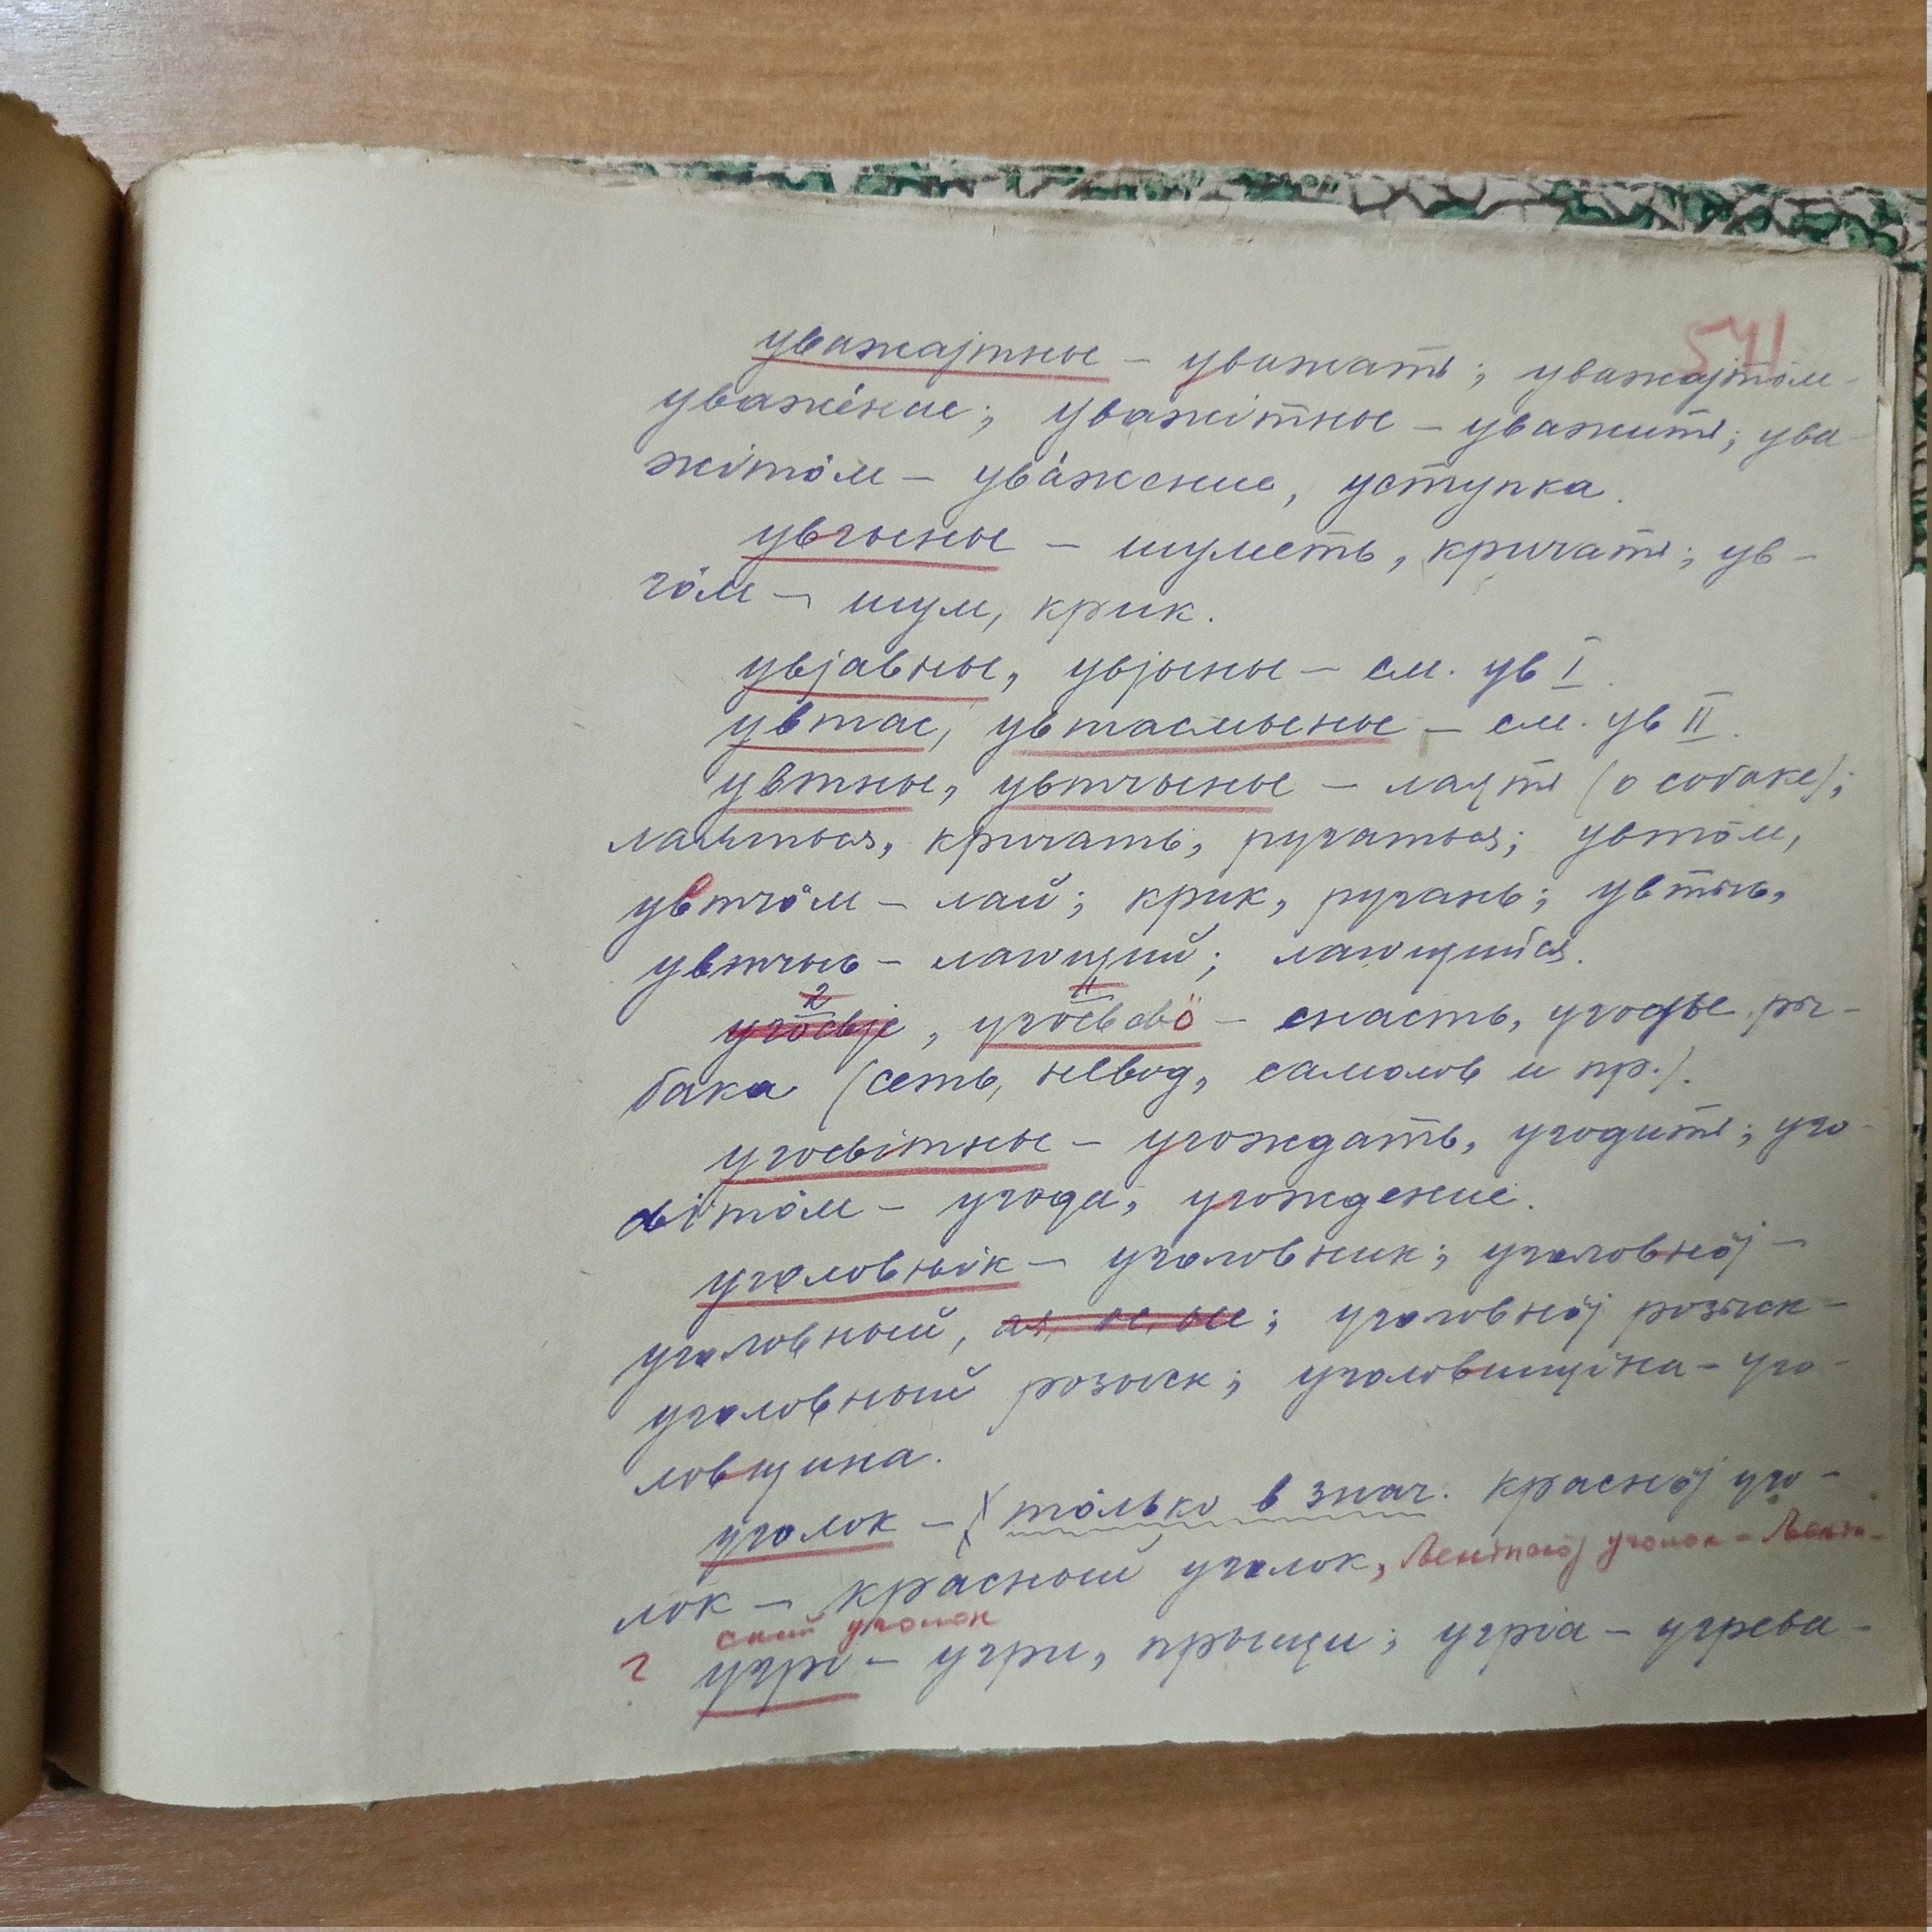 541
уважајтны – уважать; уважајтӧм –
уваже́ние; уважітны – уважить; ува-
жітӧм – ува́жение, уступка.
увгыны – шуметь, кричать; ув-
гӧм – шум, крик.
увјавны, увјыны – см. ув I.
увтас, увтасмыны – см. ув II.
увтны, увтчыны – лаять (о собаке);
лаяться, кричать, ругаться; увтӧм,
увтчӧм – лай; крик, ругань; увтыś,
увтчыś – лающий; лающийся.
угоԃԃӧ – снасть, угодье ры-
бака (сеть, невод, самолов и пр.).
угоԃітны – угождать, угодить; уго-
ԃітӧм – угода, угождение.
уголовнік – уголовник; уголовнӧј –
уголовный, ая, ое, ые; уголовнӧј розыск –
уголовный розыск; уголовщіна – уго-
ловщина.
уголок – только в знач. краснӧј уго-
лок – красный уголок, Ленінскӧј уголок – Ленин-
ский уголок
? угрі – угри, прыщи; угріа – угрева-